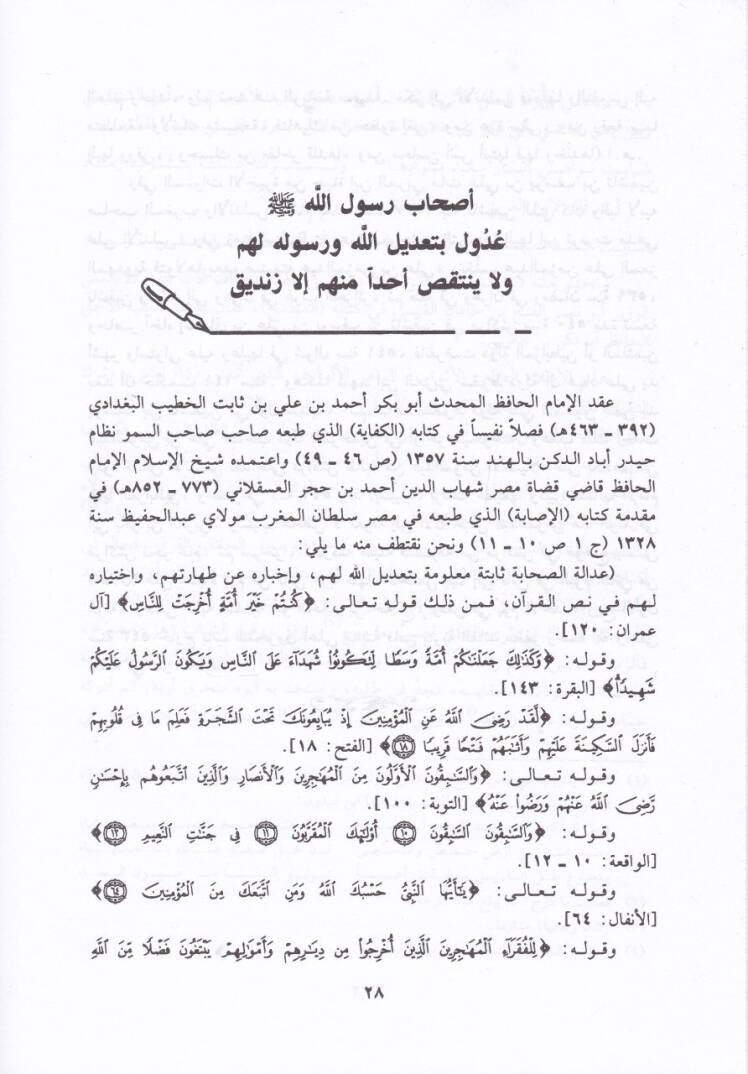 أصحاب رسول اللَّه ﷺ
عُدُول بتعديل اللَّه ورسوله لهم
ولا ينتقص أحداً منهم إلا زنديق
عقد الإمام الحافظ المحدث أبو بكر أحمد بن علي بن ثابت الخطيب البغدادي
(٣٩٢ ـ ٤٦٣هـ) فصلاً نفيساً في كتابه (الكفاية) الذي طبعه صاحب صاحب السمو نظام
حيدر أباد الدكن بالهند سنة ١٣٥٧ (ص ٤٦ ـ ٤٩) واعتمده شيخ الإسلام الإمام
الحافظ قاضي قضاة مصر شهاب الدين أحمد بن حجر العسقلاني (٧٧٣ ـ ٨٥٢هـ) في
مقدمة كتابه (الإصابة) الذي طبعه في مصر سلطان المغرب مولاي عبدالحفيظ سنة
١٣٢٨ (ج ١ ص ١٠ ـ ١١) ونحن نقتطف منه ما يلي:
(عدالة الصحابة ثابتة معلومة بتعديل الله لهم، وإخباره عن طهارتهم، واختياره
لهم في نص القرآن، فمن ذلك قوله تعالى: ﴿كُنتُمْ خَيْرَ أُمَّةٍ أُخْرِجَتْ لِلنَّاسِ﴾ [آل
عمران: ١٢٠].
وقوله: ﴿وَكَذَٰلِكَ جَعَلْنَٰكُمْ أُمَّةً وَسَطًا لِّتَكُونُوا۟ شُهَدَآءَ عَلَى ٱلنَّاسِ وَيَكُونَ ٱلرَّسُولُ عَلَيْكُمْ
شَهِيدًا﴾ [البقرة: ١٤٣].
وقوله: ﴿لَّقَدْ رَضِىَ ٱللَّهُ عَنِ ٱلْمُؤْمِنِينَ إِذْ يُبَايِعُونَكَ تَحْتَ ٱلشَّجَرَةِ فَعَلِمَ مَا فِى قُلُوبِهِمْ
فَأَنزَلَ ٱلسَّكِينَةَ عَلَيْهِمْ وَأَثَٰبَهُمْ فَتْحًا قَرِيبًا ١٨﴾ [الفتح: ١٨].
وقوله تعالى: ﴿وَٱلسَّٰبِقُونَ ٱلْأَوَّلُونَ مِنَ ٱلْمُهَٰجِرِينَ وَٱلْأَنصَارِ وَٱلَّذِينَ ٱتَّبَعُوهُم بِإِحْسَٰنٍ
رَّضِىَ ٱللَّهُ عَنْهُمْ وَرَضُوا۟ عَنْهُ﴾ [التوبة: ١٠٠].
وقوله: ﴿وَٱلسَّٰبِقُونَ ٱلسَّٰبِقُونَ ١٠ أُو۟لَٰٓئِكَ ٱلْمُقَرَّبُونَ ١١ فِى جَنَّٰتِ ٱلنَّعِيمِ ١٢﴾
[الواقعة: ١٠ ـ ١٢].
وقوله تعالى: ﴿يَٰٓأَيُّهَا ٱلنَّبِىُّ حَسْبُكَ ٱللَّهُ وَمَنِ ٱتَّبَعَكَ مِنَ ٱلْمُؤْمِنِينَ ٦٤﴾
[الأنفال: ٦٤].
وقوله: ﴿لِلْفُقَرَآءِ ٱلْمُهَٰجِرِينَ ٱلَّذِينَ أُخْرِجُوا۟ مِن دِيَٰرِهِمْ وَأَمْوَٰلِهِمْ يَبْتَغُونَ فَضْلًا مِّنَ ٱللَّهِ
٢٨